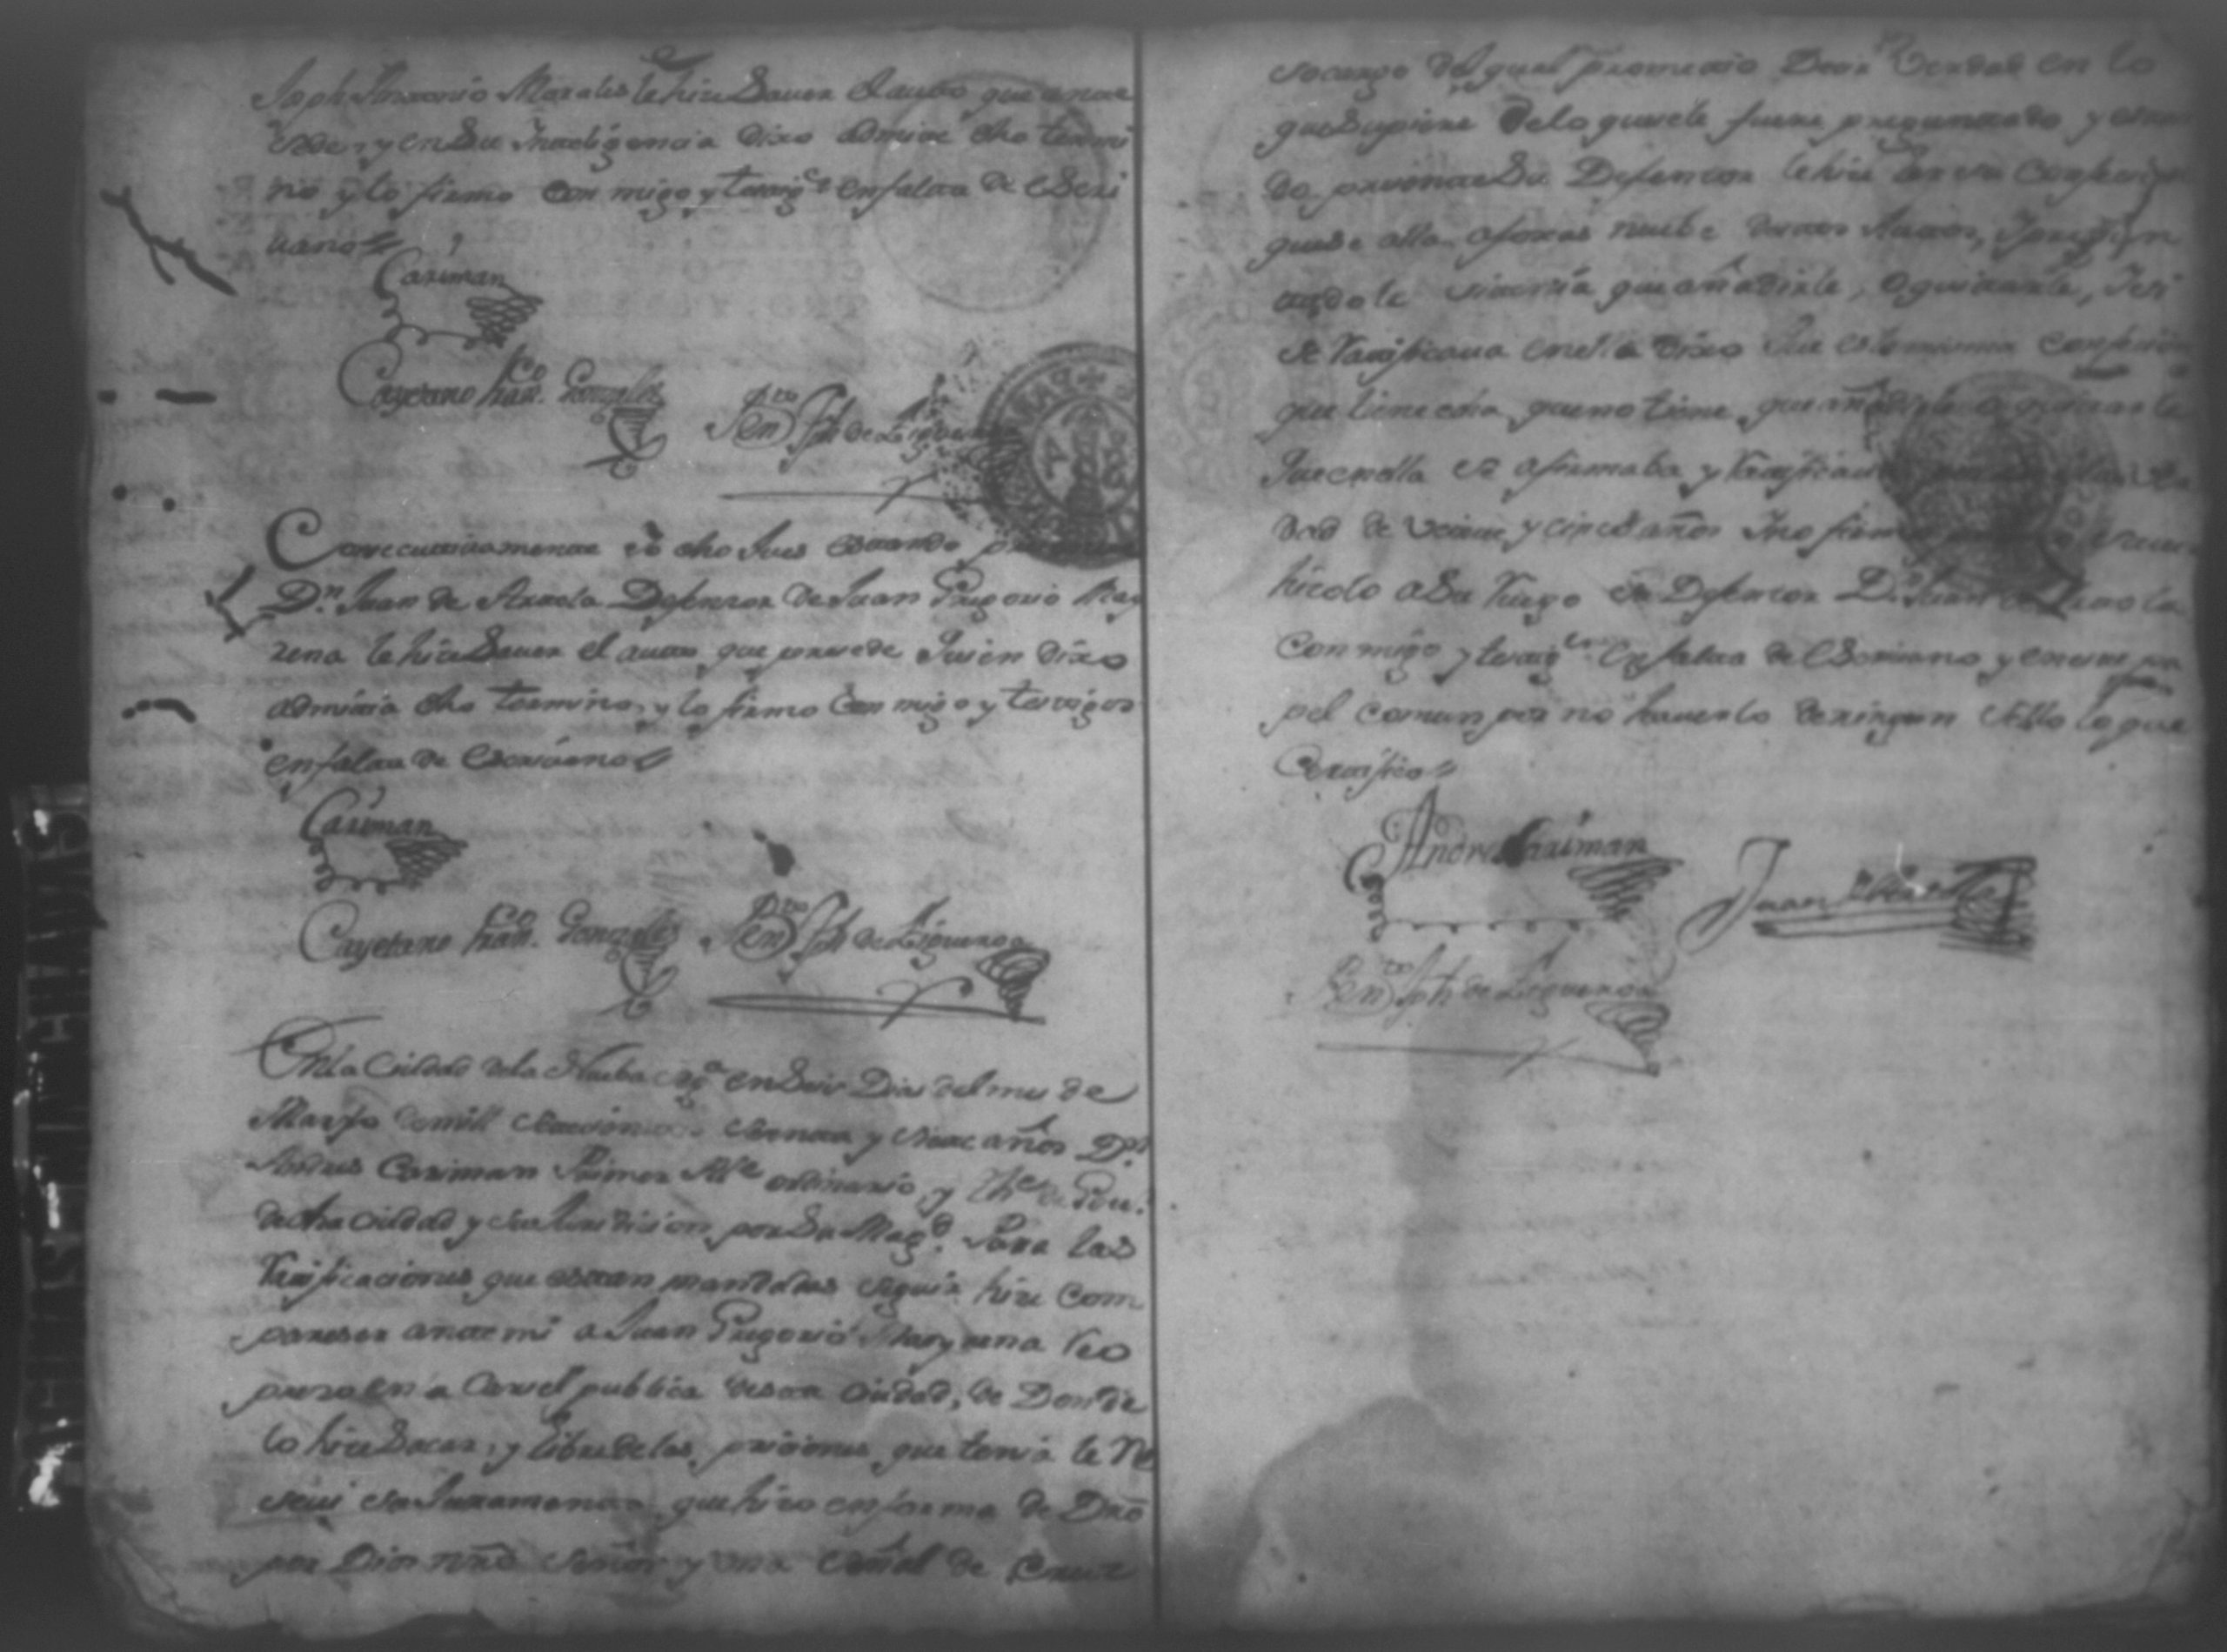 Joph Antonio Morales le hise Sauer el auto que ante
sede, y en Su Inteligencia dixo admite dho termi
no y lo firmo con migo y testig.s en falta de Escri
uano
Cariman
Cayetano Fran.co Gonzales
Ben.to Jph de Figueroa
Consecutiuamente io dho Jues estando
D.n Juan de Araola Defensor de Juan Gregorio May
rena le hise Sauer el auto que presede Quien dixo
admitia dho termino, y lo firmo Con migo y testigos
en falta de Escriuano
Cariman
Cayetano Fran.co Gonzales
Ben.to Jph de Figueroa
En la Ciudad dela Nueba en Seis Dias del mes de
Marzo de mill setecientos setenta y siete años D.n
Andres Cariman Primer Al.e ordinario y The. de Gou.r
de dha Ciudad y su Jurisdision por Su Mag.d Para las
Ratificaciones que estan mandadas seguir hise Com
pareser ante mi a Juan Gregorio Mayrena Reo
preso en la Carsel publica desta Ciudad, de Donde
lo hise Sacar, y libre de las prisiones que tenia le Re
seui su Juramento que hizo en forma de Dro
por Dios nro Señor y una Señal de Cruz
so cargo del qual prometio Desir Verdad en lo
que Supiere de lo que se le fuere preguntado y estan
do presente Su Defensor le hise leer su Confesion
que se alla a foxas nuebe destos Autos, I pregun
tandole si tenia que añadirle, o quitarle, I si
se Ratificaua en ella dixo Que es la misma Confesion
que tiene dha que no tiene que añadirle o quitarle
Que en ella se afirmaba y Ratificaua
dad de veinte y cinco años I no firmo
hisolo a Su Ruego su Defensor D.n Juan de Araola
Con migo y testig.s en falta de Escriuano y en este pa
pel Comun por no hauerlo de ningun Sello lo que
Certifico
Andres Cariman
Juan de Araola
Ben.to Jph de Figueroa